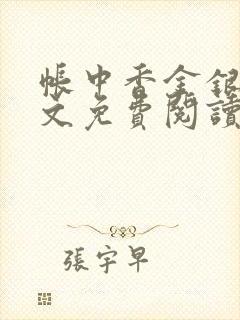 帳中香金銀
文免費閱讀
張宇早